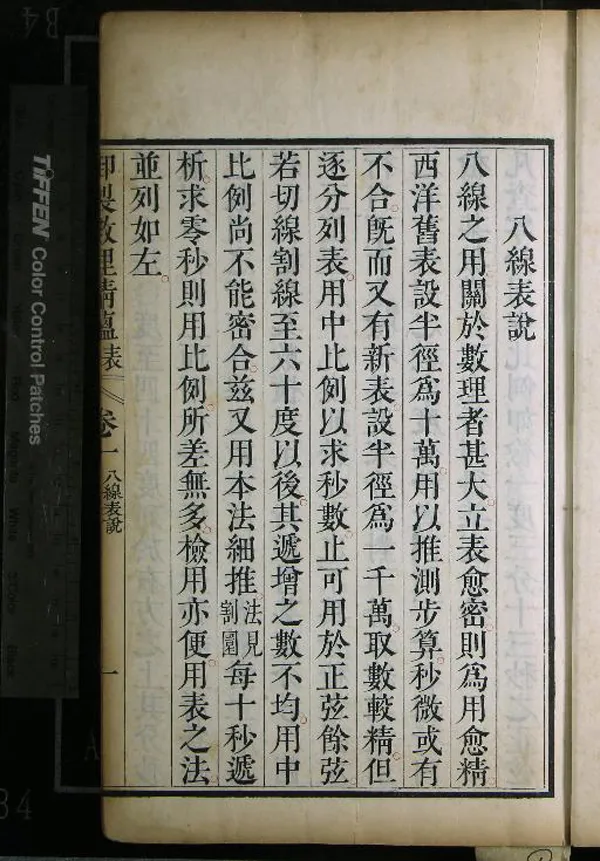 八線表說
八線之用關於數理者甚大立表愈密則爲用愈精
西洋舊表設半徑爲十萬用以推測步算秒微或有
不合旣而又有新表設半徑爲一千萬取數較精但
逐分列表用中比例以求秒數止可用於正弦餘弦
若切線割線至六十度以後其遞增之數不均用中
比例尚不能密合茲又用本法細推法見割圜每十秒遞
析求零秒則用比例所差無多檢用亦便用表之法
並列如左
御製數理精蘊表 卷一 八線表說 一
TIFFEN Color Control Patches
B4
B
A
B4